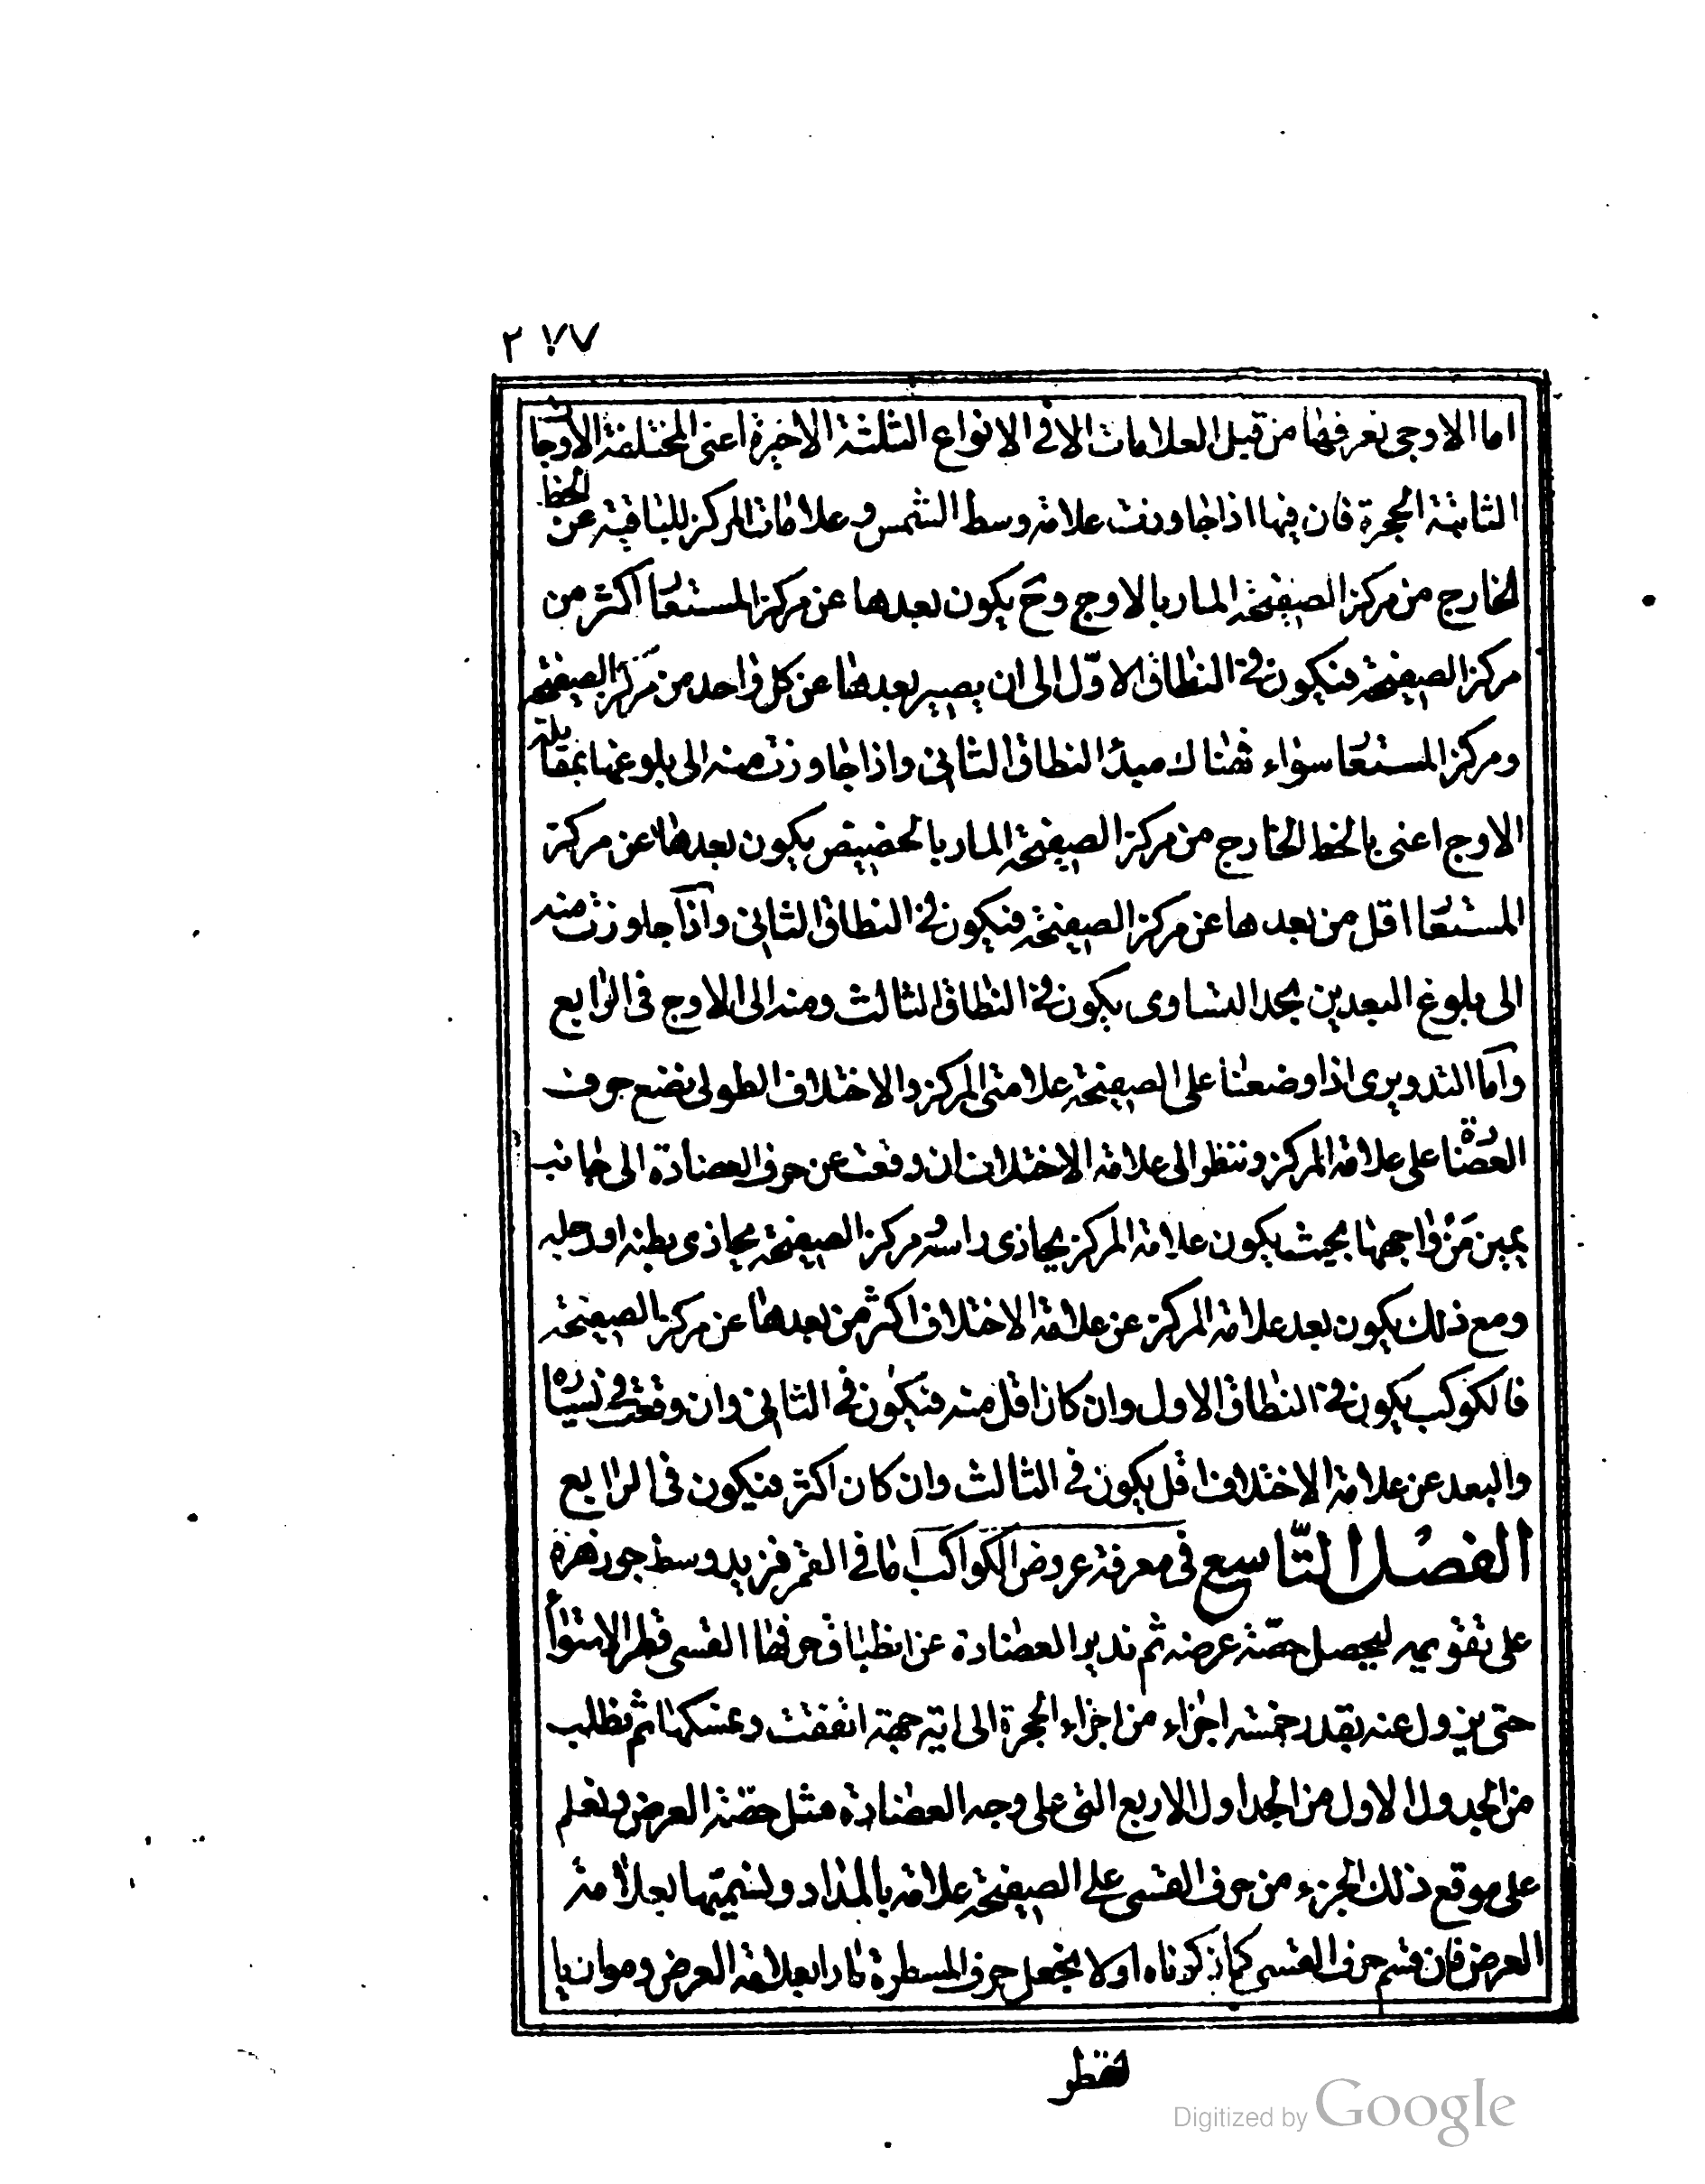 ٢٧٧
اما الاوجى نعرفها من قبل العلامات الا فى الانواع الثلثة الاخيرة اعنى المختلفة الاوجا
الثابتة الحجرة فان فيها اذا جاوزت علامة وسط الشمس و علامات المركز للباقية عن الخط
الخارج من مركز الصفيحة المار بالاوج وح يكون بعدها عن مركز المستعا اكثر من
مركز الصفيحة فيكون فى النطاق الاوّل الى ان يصير بعدها عن كل واحد من مركز الصفيحة
ومركز المستعا سواء فهنالك مبدأ النطاق الثانى واذا جاوزت منه الى بلوغها بمقابلة
الاوج اعنى بالخط الخارج من مركز الصفيحة المار بالحضيض يكون بعدها عن مركز
المستعا اقل من بعدها عن مركز الصفيحة فيكون فى النطاق الثانى واذا جاوزت منه
الى بلوغ البعدين بحد التساوى يكون فى النطاق الثالث ومنه الى الاوج فى الرابع
وامّا التدويرى اذا وضعنا على الصفيحة علامتى المركز والاختلاف الطولى نضع حرف
العضادة على علامة المركز وننظر الى علامة الاختلاف ان وقعت عن حرف العضادة الى جانب
يمين مَن واجهها بحيث يكون علامة المركز يحاذى راسه ومركز الصفيحة يحاذى بطنه او رجليه
ومع ذلك يكون بعد علامة المركز عن علامة الاختلاف اكثر من بعدها عن مركز الصفيحة
فالكوكب يكون فى النطاق الاول وان كان اقل منه فيكون فى الثانى وان وقعت فى يساره
والبعد عن علامة الاختلاف اقل يكون فى الثالث وان كان اكثر فيكون فى الرابع
الفصل التّاسع فى معرفة عروض الكواكب اما فى القمر فنزيد وسط جوزهره
على تقويمه ليحصل حصّة عرضه ثم ندير العضادة عن انطباق حرفها القسى قطر الاستواء
حتى يزول عنه بقدر خمسة اجزاء من اجزاء الحجرة الى اية جهة اتفقت ونمسكها ثم نطلب
من الجدول الاول من الجداول الاربع التى على وجه العضادة مثل حصّة العرض ونعلم
على موقع ذلك الجزء من حرف القسى على الصفيحة علامة بالمداد ونسمّيها بعلامة
العرض فان قسم حرف القسى كما ذكرناه اولا نجعل حرف المسطرة مارا بعلامة العرض وموازيا
لقطر
Digitized by Google